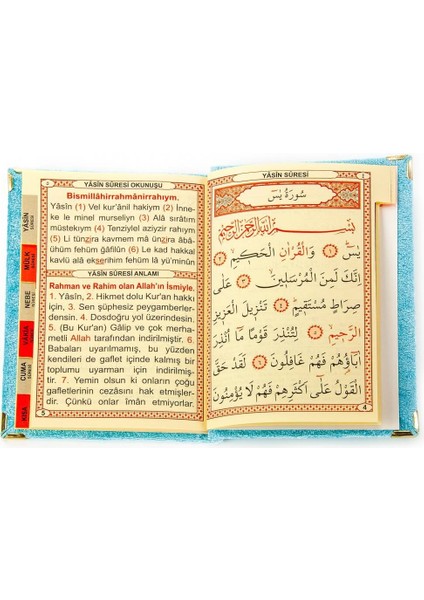 YÂSÎN SÛRESİ OKUNUŞU
Bismillâhirrahmânirrahıym.
Yâsîn (1) Vel kur'ânil hakiym (2) İnne-
ke le minel murseliyn (3) Alâ sırâtım
müstekıym (4) Tenziylel aziyzir rahıym
(5) Li tünzira kavmem mâ ünzira âbâ-
ühüm fehüm ğâfilûn (6) Le kad hakkal
kavlü alâ ekserihim fehüm lâ yü'minûn
YÂSÎN SÛRESİ ANLAMI
Rahman ve Rahim olan Allah'ın İsmiyle.
1. Yâsîn, 2. Hikmet dolu Kur'an hakkı
için, 3. Sen şüphesiz peygamberler-
densin. 4. Dosdoğru yol üzerindesin.
5. (Bu Kur'an) Gâlip ve çok merha-
metli Allah tarafından indirilmiştir. 6.
Babaları uyarılmamış, bu yüzden
kendileri de gaflet içinde kalmış bir
toplumu uyarman için indirilmiş-
tir. 7. Yemin olsun ki onların çoğu
gafletlerinin cezasını hak etmişler-
dir. Çünkü onlar îmân etmiyorlar.
5
YÂSİN
SÛRESİ
MÜLK
SÛRESİ
NEBE
SÛRESİ
VAKIA
SÛRESİ
CUMA
SÛRESİ
KISA
YÂSÎN SÛRESİ
سُورَةُ يٰسٓ
بِسْمِ اللّٰهِ الرَّحْمٰنِ الرَّحِيمِ
يٰسٓ ﴿١﴾ وَالْقُرْاٰنِ الْحَكِيمِ ﴿٢﴾
اِنَّكَ لَمِنَ الْمُرْسَلِينَ ﴿٣﴾ عَلٰى
صِرَاطٍ مُسْتَقِيمٍ ﴿٤﴾ تَنْزِيلَ الْعَزِيزِ
الرَّحِيمِ ﴿٥﴾ لِتُنْذِرَ قَوْمًا مَٓا اُنْذِرَ
اٰبَٓاؤُهُمْ فَهُمْ غَافِلُونَ ﴿٦﴾ لَقَدْ حَقَّ
الْقَوْلُ عَلٰٓى اَكْثَرِهِمْ فَهُمْ لَا يُؤْمِنُونَ
4